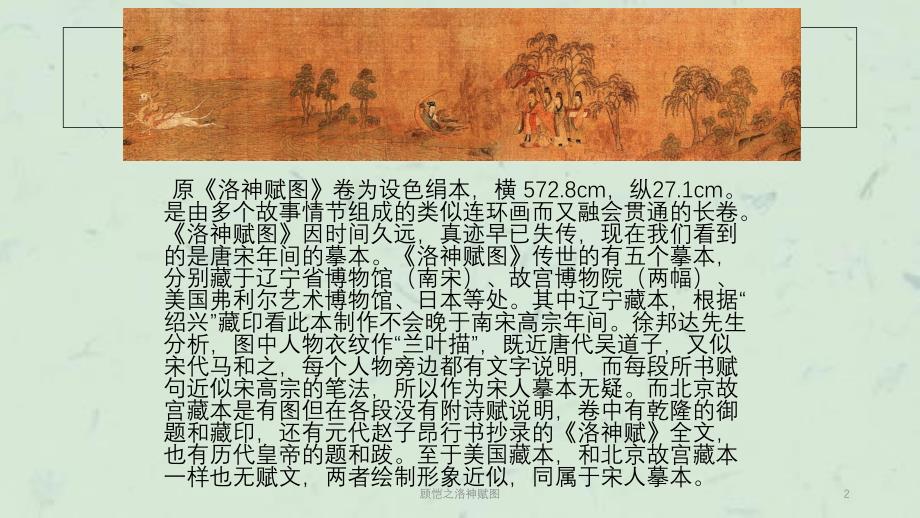 原《洛神赋图》卷为设色绢本，横 572.8cm，纵27.1cm。
是由多个故事情节组成的类似连环画而又融会贯通的长卷。
《洛神赋图》因时间久远，真迹早已失传，现在我们看到
的是唐宋年间的摹本。《洛神赋图》传世的有五个摹本，
分别藏于辽宁省博物馆（南宋）、故宫博物院（两幅）、
美国弗利尔艺术博物馆、日本等处。其中辽宁藏本，根据“
绍兴”藏印看此本制作不会晚于南宋高宗年间。徐邦达先生
分析，图中人物衣纹作“兰叶描”，既近唐代吴道子，又似
宋代马和之，每个人物旁边都有文字说明，而每段所书赋
句近似宋高宗的笔法，所以作为宋人摹本无疑。而北京故
宫藏本是有图但在各段没有附诗赋说明，卷中有乾隆的御
题和藏印，还有元代赵子昂行书抄录的《洛神赋》全文，
也有历代皇帝的题和跋。至于美国藏本，和北京故宫藏本
一样也无赋文，两者绘制形象近似，同属于宋人摹本。
顾恺之洛神赋图
2